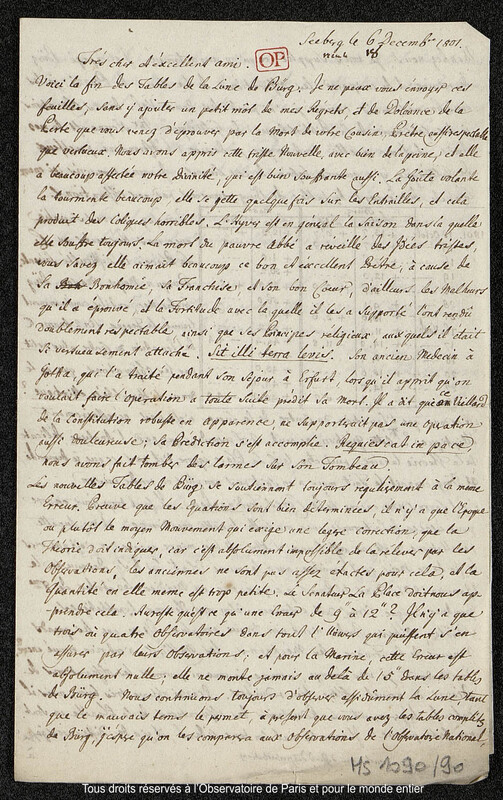 Seeberg le 6 Decembre 1801.
Très cher et excellent ami
OP
Voici la fin des Tables de la Lune de Bürg, Je ne peux vous envoyer ces
feuilles, sans y ajouter un petit môt de mes Regrets, et de Doleance de la
Perte que vous venez d'eprouver par la Mort de votre Cousin, Prêtre, aussi respectable
que vertueux. Nous avons appris cette triste Nouvelle, avec bien de la peine, et elle
a beaucoup affectée notre Divinité, qui est bien souffrante aussi. La Goute volante
la tourmente beaucoup, elle se jette quelquefois sur les Entrailles, et cela
produit des Coliques horribles. L'Hyver est en général la Saison dans la quelle
elle souffre toujours. La mort du pauvre Abbé a reveillé des Idées tristes,
vous savez elle aimait beaucoup ce bon et excellent Prêtre, à cause de
sa Bonhomie, sa Franchise, et son bon Coeur, d'ailleurs les Malheurs
qu'il a éprouvé, et la Fortitude avec la quelle il les a supporté l'ont rendu
doublement respectable, ainsi que ses Principes religieux, aux quels il était
si vertueusement attaché. Sit illi terra levis. Son ancien Medecin à
Gotha, qui l'a traité pendant son séjour à Erfurt, lorsqu'il apprit qu'on
voulait faire l'operation a toute suite prédit sa Mort. Il a dit que ce Vieillard
de la Constitution robuste en apparence, ne supporterait pas une operation
aussi douleureuse; sa Prediction s'est accomplie. Requiescat in pace,
nous avons fait tomber des larmes sur son Tombeau.
Les nouvelles Tables de Bürg se soutiennent toujours regulierement à la même
Erreur. Preuve que les Equations sont bien determinées, il n'y a que l'Epoque
ou plutôt le moyen Mouvement qui exige une legere correction, que la
Théorie doit indiquer, car c'est absolument impossible de la relever par les
Observations, les anciennes ne sont pas assez exactes pour cela, et la
Quantité en elle meme est trop petite. Le Senateur La Place doit nous ap-
prendre cela. Au reste qu'est ce qu'une Erreur de 9" à 12"? Il n'y a que
trois ou quatre Observatoires dans tout l'Univers qui puissent s'en
assurer par leurs Observations; et pour la Marine, cette Erreur est
absolument nulle; elle ne monte jamais au delà de 15" dans les tables
de Bürg. Nous continuons toujours d'observer assidument la Lune, tant
que le mauvais tems le permet, à présent que vous avez les tables complètes
de Bürg, j'espere qu'on les comparera aux Observations de l'Observatoire National,
MS 1090/90
Tous droits réservés à l'Observatoire de Paris et pour le monde entier